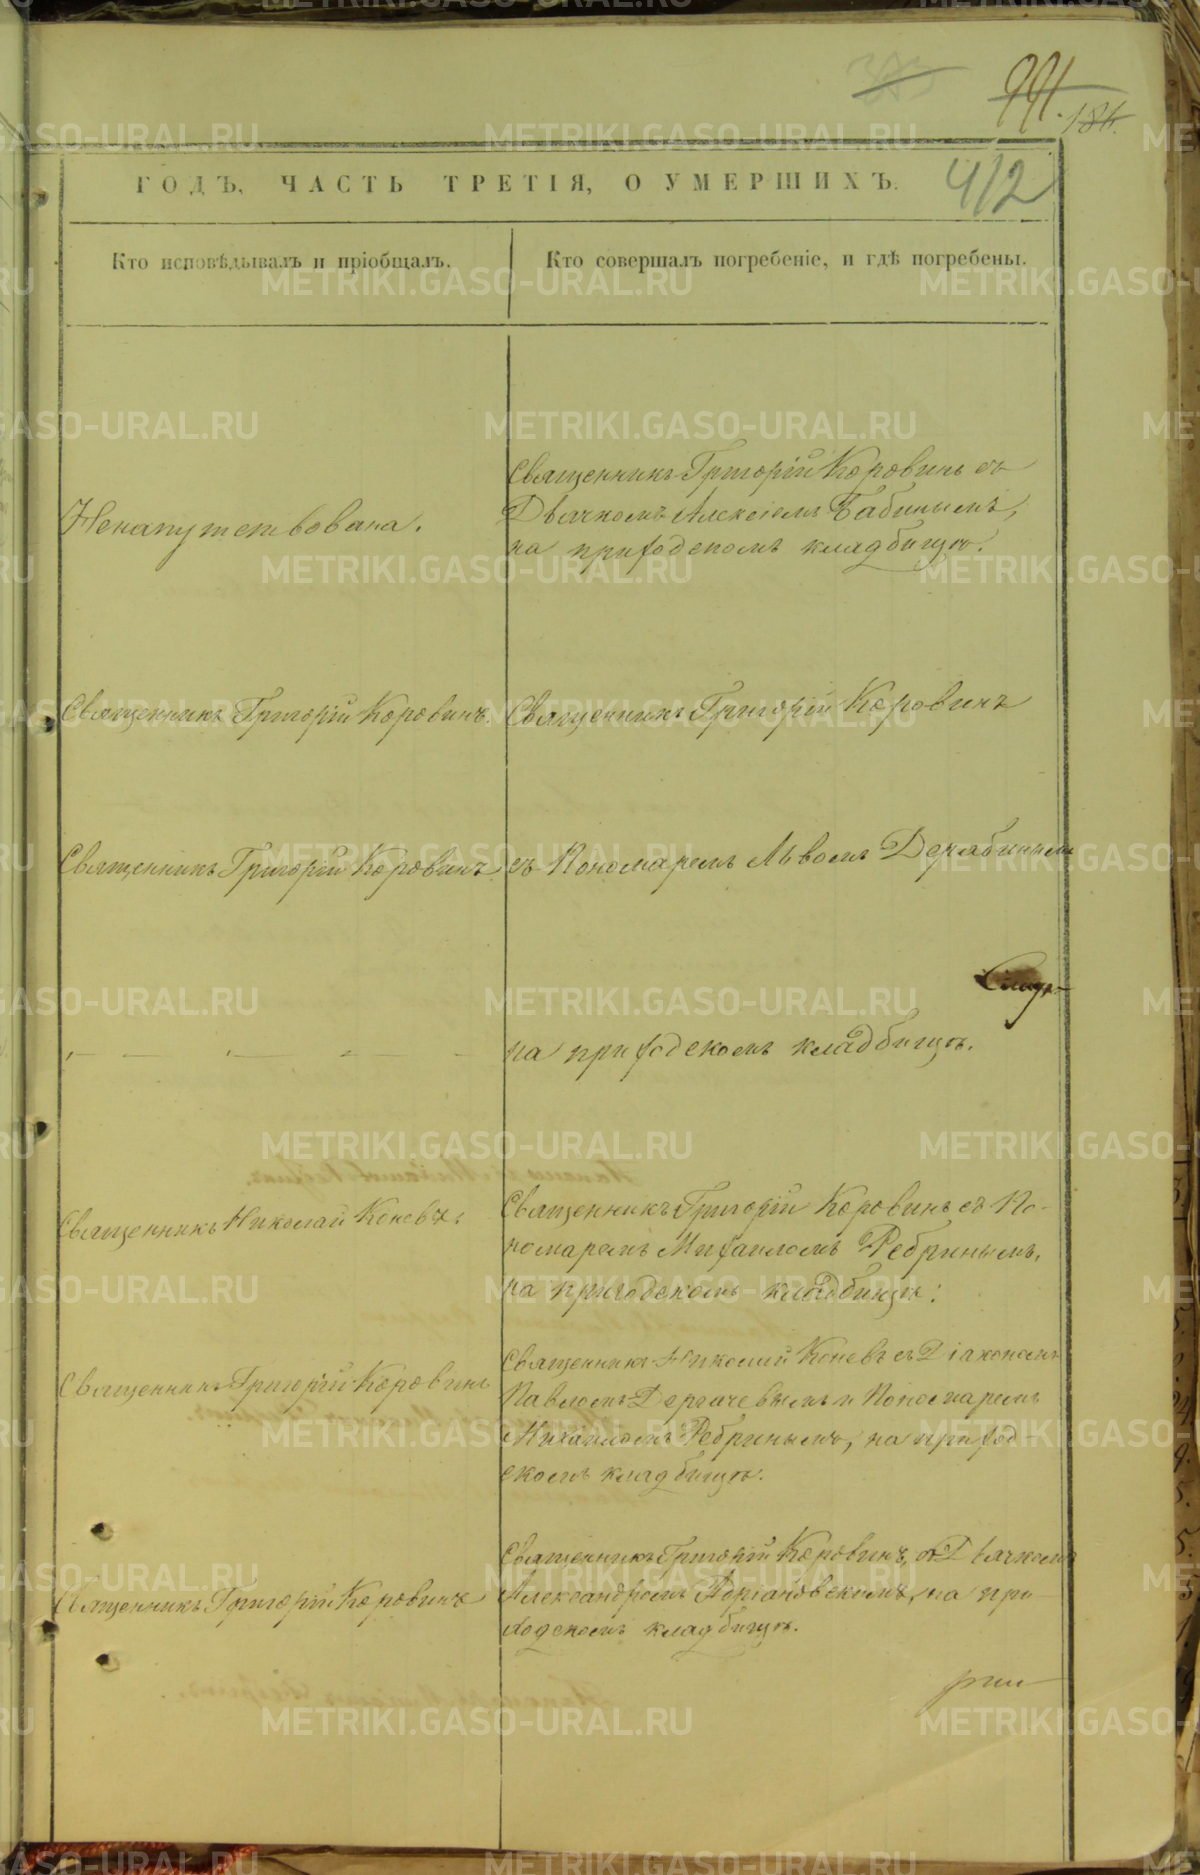 373
991.
184.
412
ГОДЪ, ЧАСТЬ ТРЕТІЯ, О УМЕРШИХЪ.
Кто исповѣдывалъ и пріобщалъ.
Кто совершалъ погребеніе, и гдѣ погребены.
Ненапутствована.
Священникъ Григорій Коровинъ съ
Дьячкомъ Алексѣемъ Бабинымъ,
на приходскомъ кладбищѣ.
Священникъ Григорій Коровинъ.
Священникъ Григорій Коровинъ
Священникъ Григорій Коровинъ
съ Пономаремъ Львомъ Дерябинымъ
на приходскомъ кладбищѣ.
Священникъ Николай Коневъ.
Священникъ Григорій Коровинъ съ По-
номаремъ Михаиломъ Ребринымъ,
на приходскомъ кладбищѣ.
Священникъ Григорій Коровинъ
Священникъ Николай Коневъ съ Діакономъ
Павломъ Дергачевымъ и Пономаремъ
Михаиломъ Ребринымъ, на приход-
скомъ кладбищѣ.
Священникъ Григорій Коровинъ
Священникъ Григорій Коровинъ, съ Дьячкомъ
Александромъ Адріановскомъ, на при-
ходскомъ кладбищѣ.
METRIKI.GASO-URAL.RU